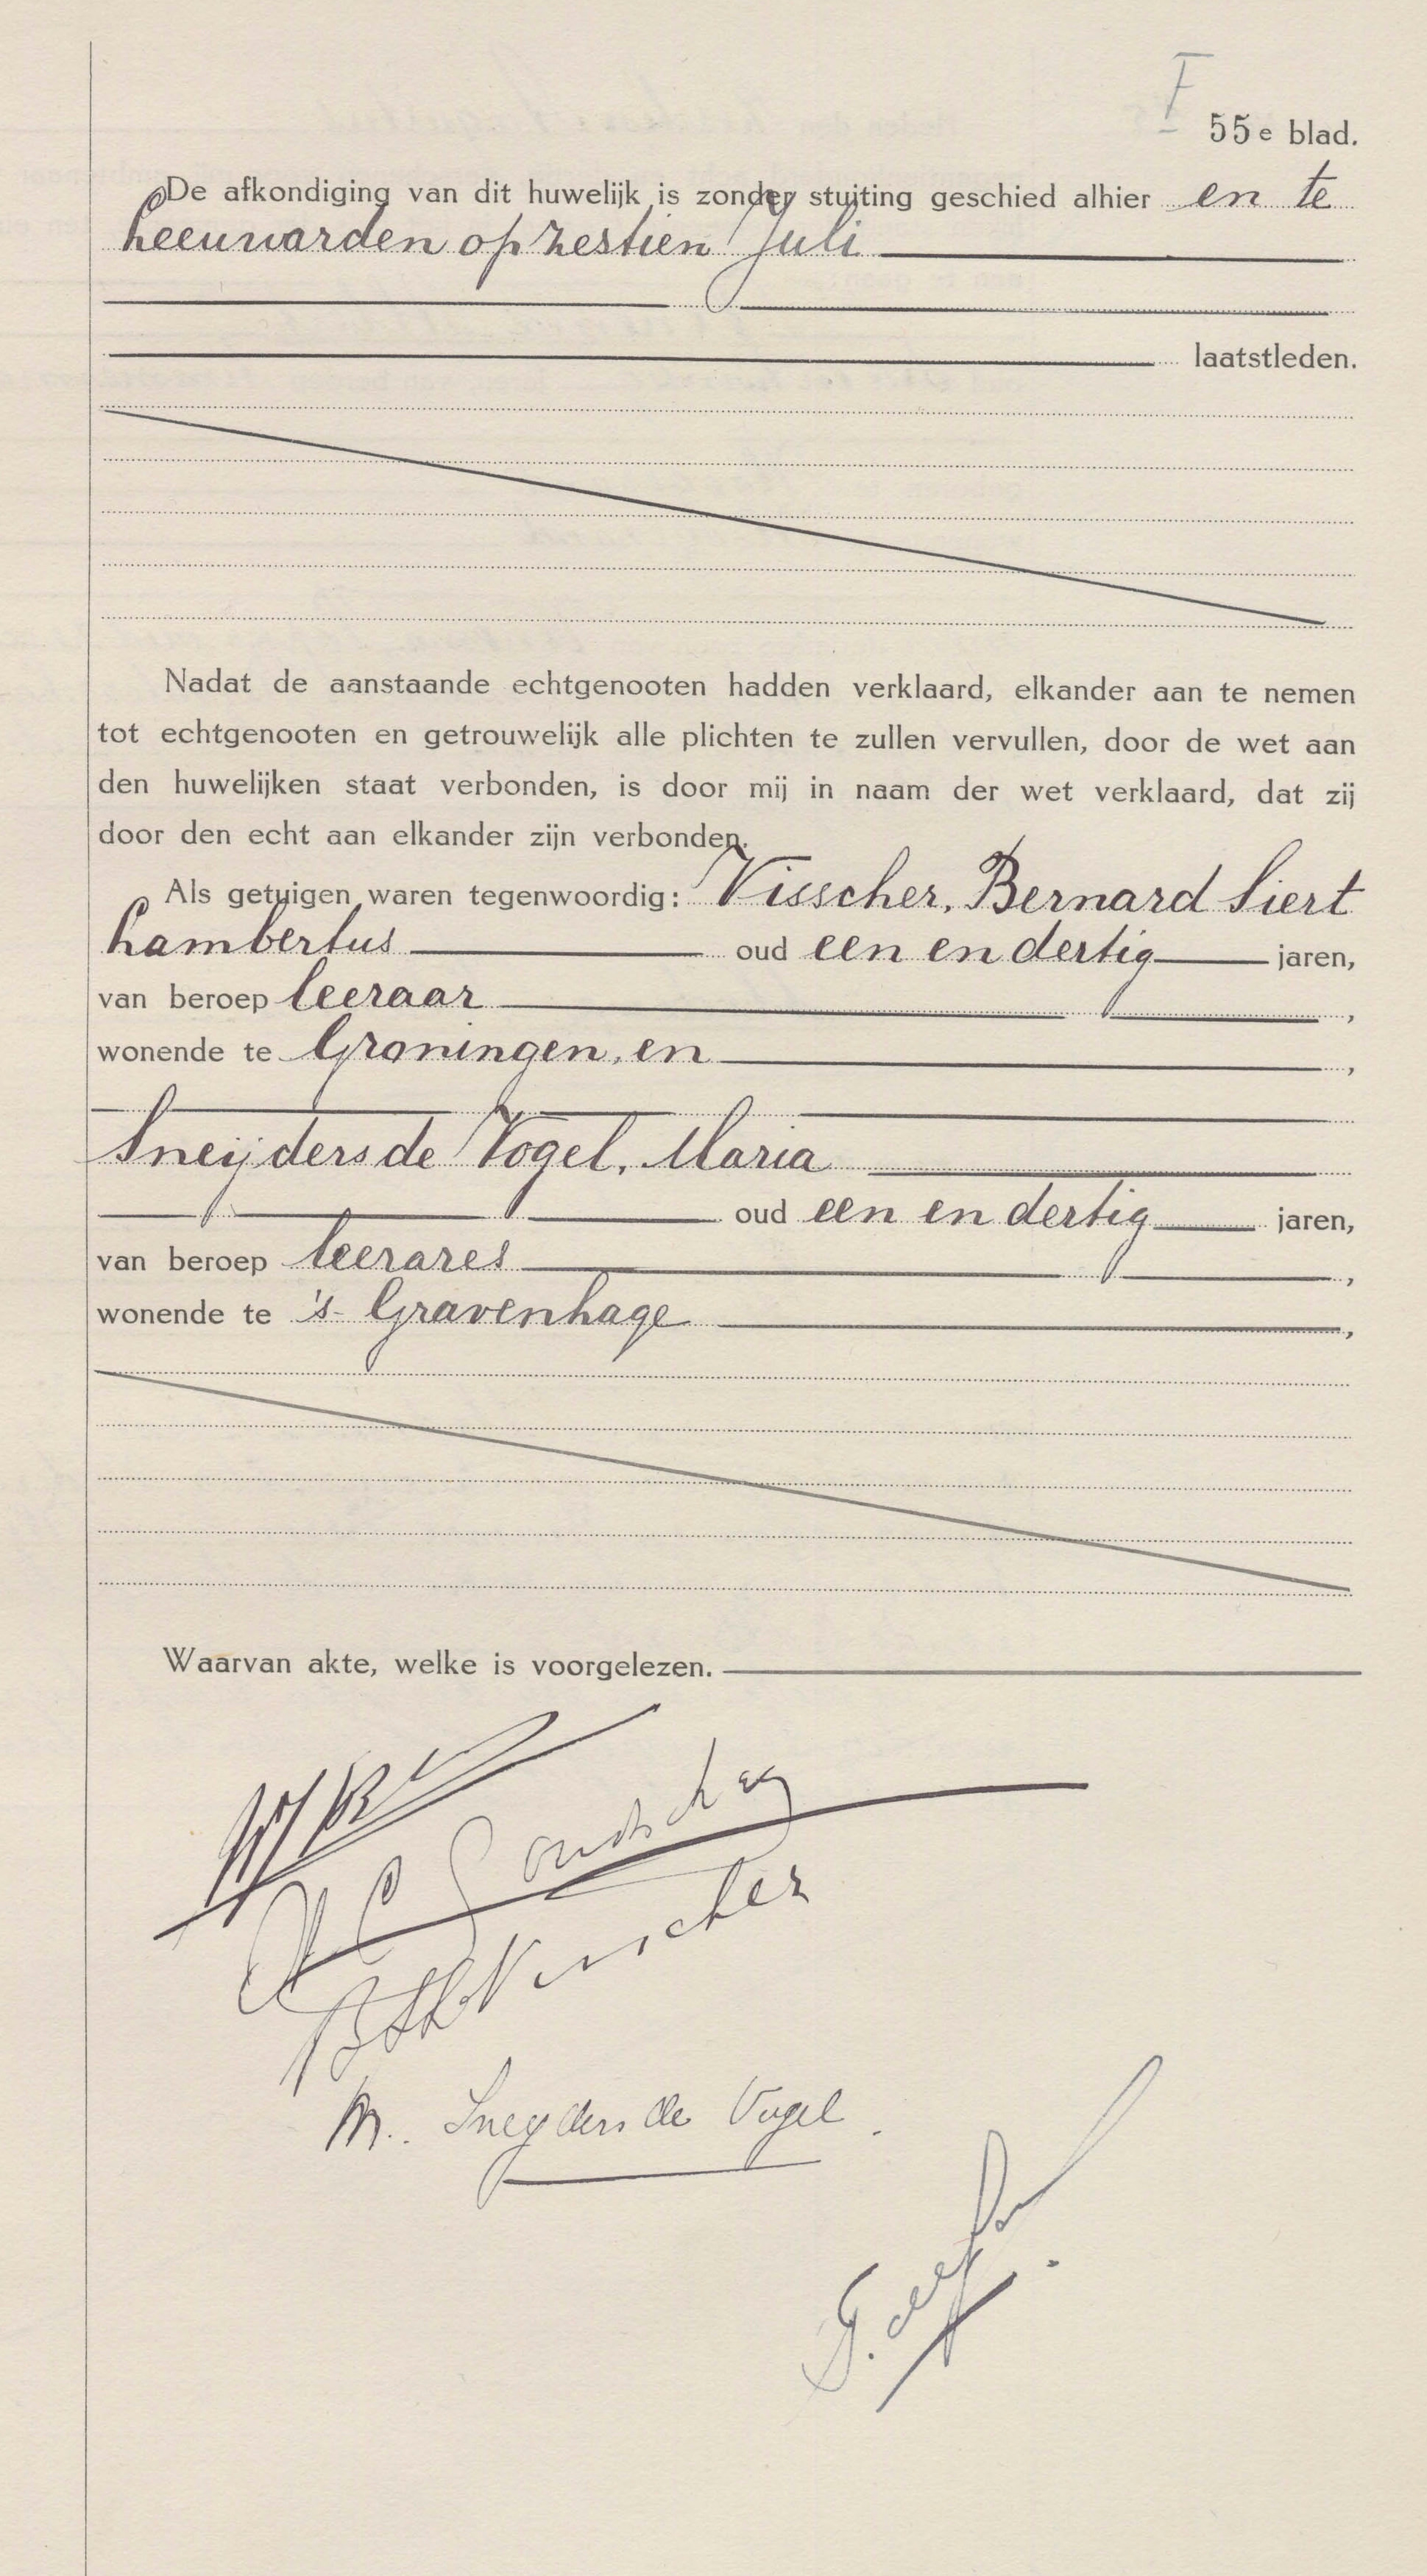 F
55e blad.
De afkondiging van dit huwelijk is zonder stuiting geschied alhier en te
Leeuwarden op zestien Juli
laatstleden.
Nadat de aanstaande echtgenooten hadden verklaard, elkander aan te nemen
tot echtgenooten en getrouwelijk alle plichten te zullen vervullen, door de wet aan
den huwelijken staat verbonden, is door mij in naam der wet verklaard, dat zij
door den echt aan elkander zijn verbonden.
Als getuigen waren tegenwoordig: Visscher, Bernard Siert
Lambertus oud een en dertig jaren,
van beroep leeraar ,
wonende te Groningen, en ,
Sneijders de Vogel, Maria
oud een en dertig jaren,
van beroep leerares ,
wonende te 's-Gravenhage ,
Waarvan akte, welke is voorgelezen.
Visscher
M. Sneyders de Vogel.